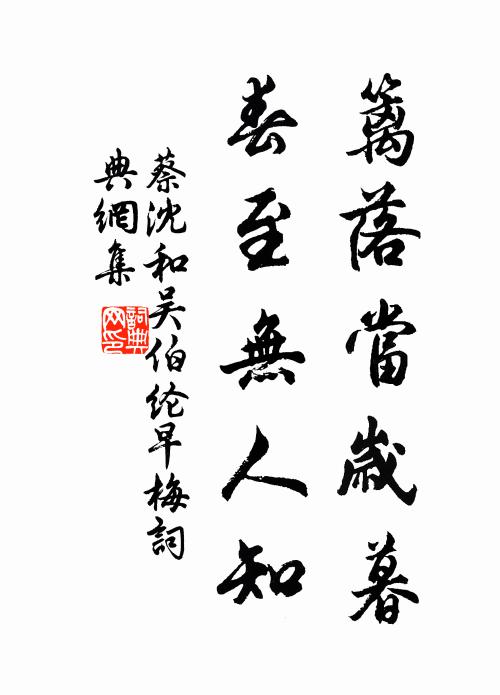 籬落當歲暮
春至無人知
蔡沈和吴伯纶早梅詞
典網集
詞典
网印